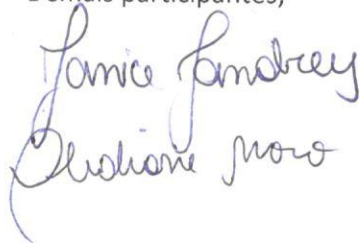 Demais participantes,
Janice Jandrey
moro